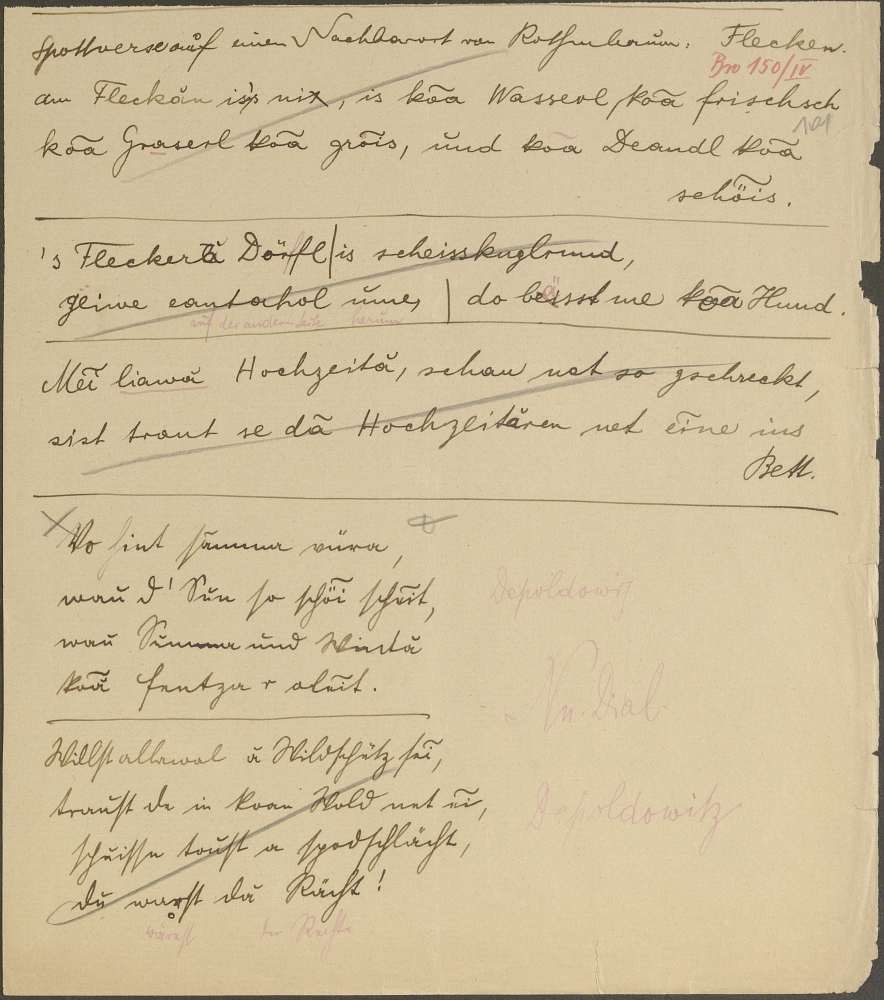 Spottverse auf einen Nachbarort von Rothenbaum: Flecken.
Bro 150/IV
am Fleckån is's nix, is kõa Wasserl kõa frischsch
kõa Graserl kõa grõis, und kõa Deandl kõa
schõis.
's Fleckerlå Dörffl | is scheisskuglrund,
geiwe eantahol ume, | do beisst me kõa Hund.
auf der andern Seite herum
Mei liawå Hochzeitå, schau net so gschreckt,
sist traut se då Hochzeitåren net eine ins
Bett.
Vo hint såmma vüra,
wau d' Sun so schöi scheit,
wau Summa und Winta
kõa
Depoldowitz
Willst allawal å Wildschütz sei,
traust de in koan Wold net ei,
schuissn toust a spodschlächt,
du warst då Rächt!
wärest der Rechte
Depoldowitz